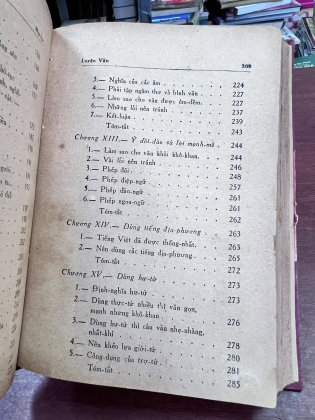 Luyện Văn 309
3.— Nghĩa của các âm . . . 224
4.— Phải tập ngâm thơ và bình văn . . 227
5.— Làm sao cho văn được êm-đềm. . 227
6.— Những lỗi nên tránh . . . 237
7.— Kết-luận . . . 239
Tóm-tắt . . . 243
Chương XIII.— Ý dồi-dào và lời mạnh-mẽ . 244
1.— Làm sao cho văn khỏi khô-khan. . 244
2.— Vài lỗi nên tránh . . . 246
3.— Phép đối . . . 248
4.— Phép điệp-ngữ . . . 257
5.— Phép đảo-ngữ . . . 261
6.— Phép ngoa-ngữ . . . 261
Tóm-tắt . . . 262
Chương XIV.— Dùng tiếng địa-phương . . 263
1.— Tiếng Việt đã được thống-nhất. . 263
2.— Nên dùng các tiếng địa-phương. . 265
Tóm-tắt . . . 272
Chương XV.— Dùng hư-tử . . . 273
1.— Định-nghĩa hư-tử . . . 273
2.— Dùng thực-tử nhiều thì văn gọn,
mạnh nhưng khô-khan . . . 276
3.— Dùng hư-tử thì câu văn nhẹ-nhàng,
nhất-khí . . . 278
4.— Nên khéo lựa giới-từ . . . 280
5.— Công-dụng của trợ-từ . . . 281
Tóm-tắt . . . 285